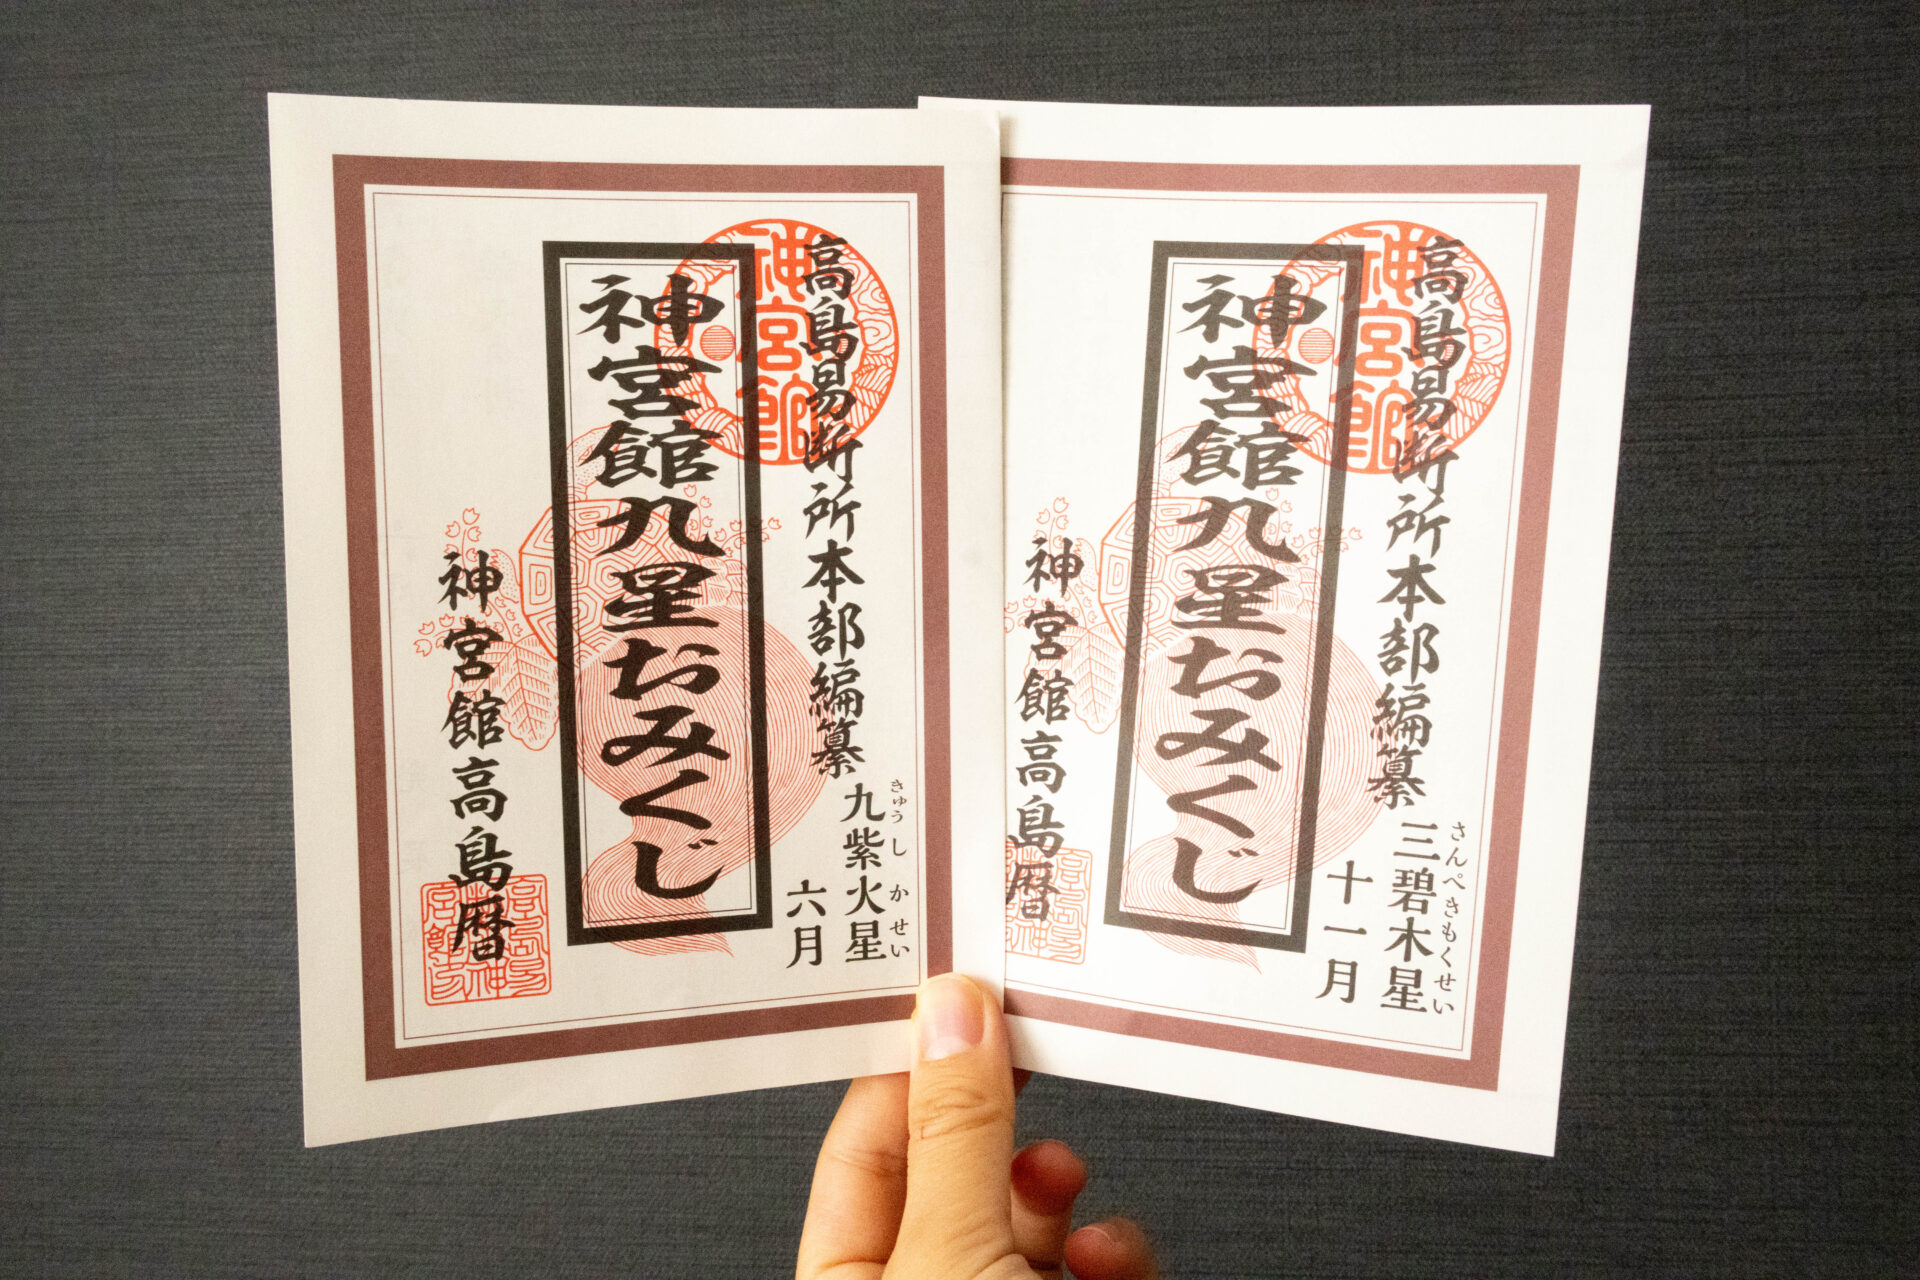 高島易断所本部編纂
神宮館
九紫火星
きゅうしかせい
六月
神宮館九星おみくじ
神宮館高島暦
高島易断所本部編纂
神宮館
三碧木星
さんぺきもくせい
十一月
神宮館九星おみくじ
神宮館高島暦